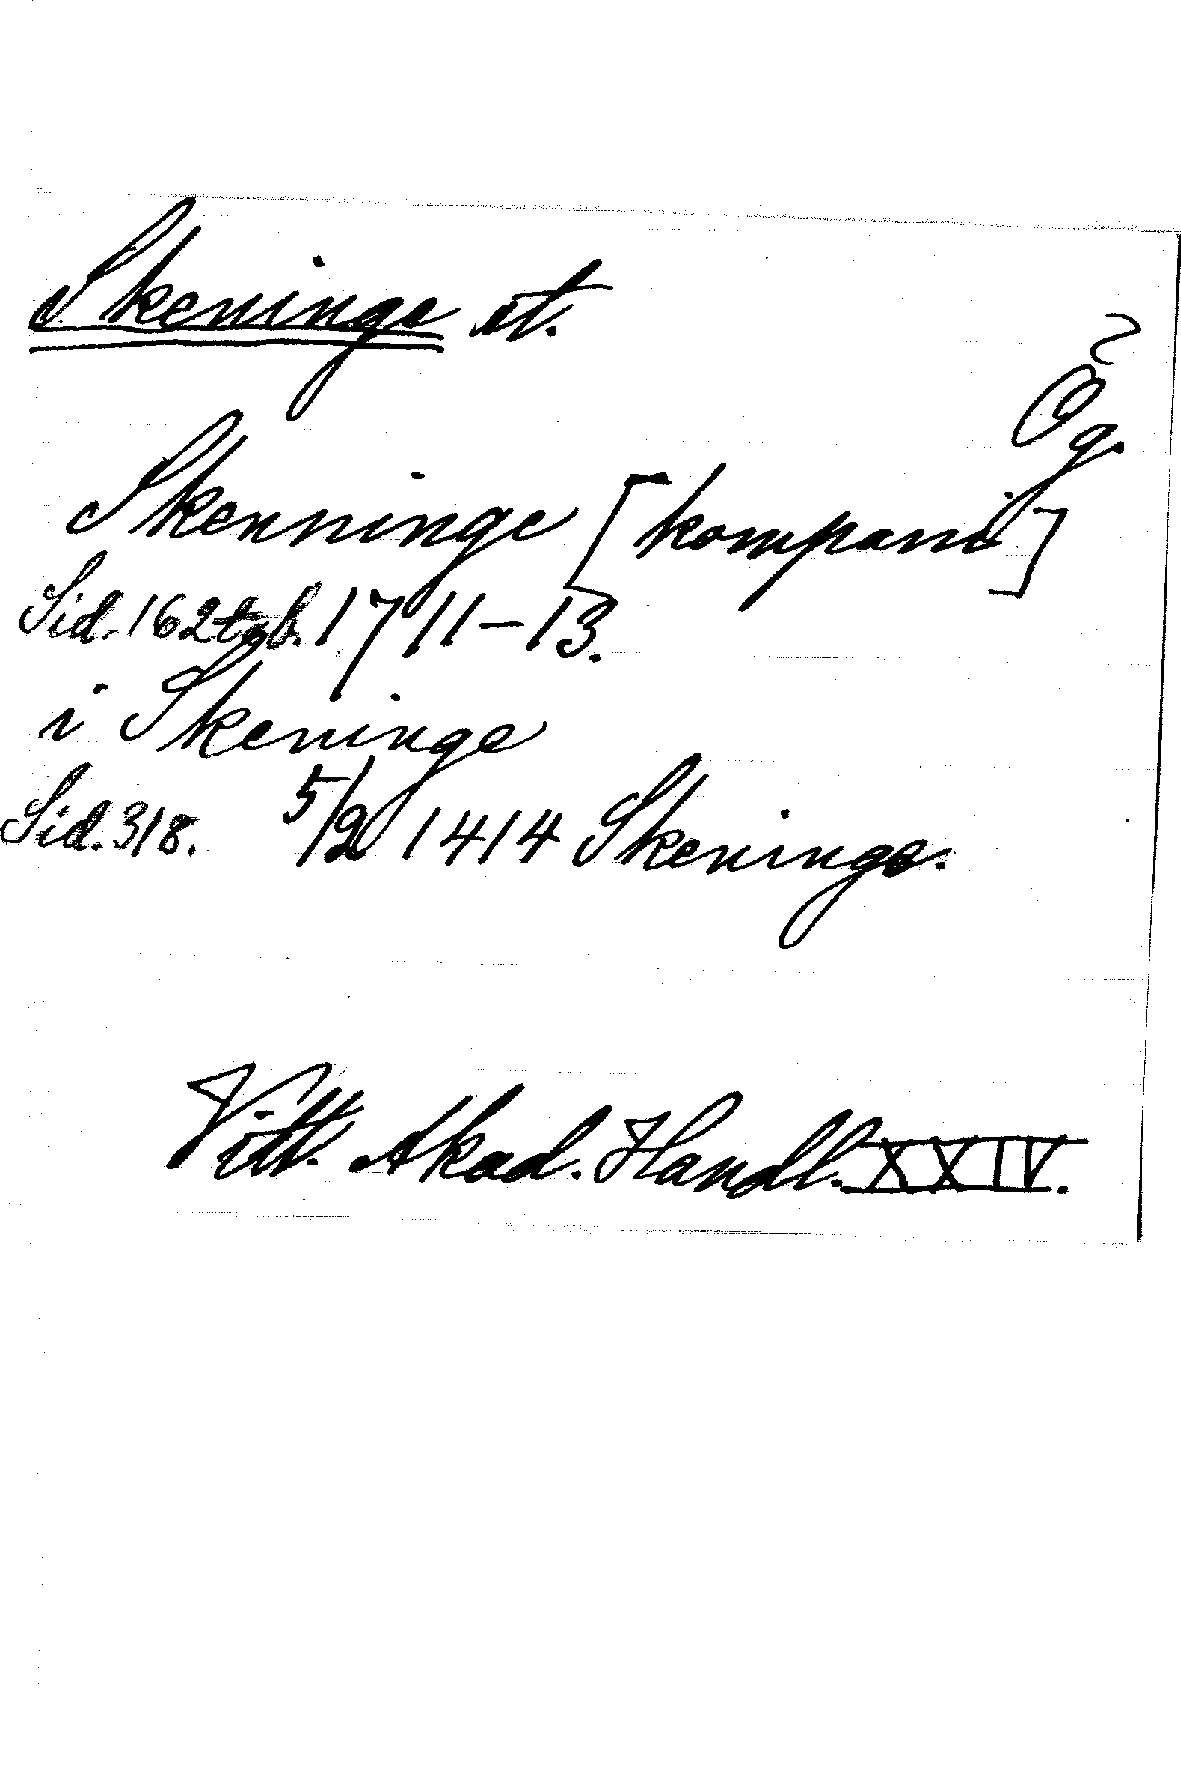 Skeninge st.
Ög.
Skenninge [kompani]
Sid. 162 tab. 1711–13.
i Skeninge
Sid. 318. 5/2 1414 Skeninge.
Vitt. Akad. Handl. XXIV.